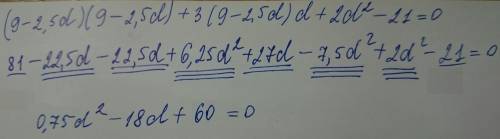 (9-2,5d)(9-2,5d)+3(9-2,5d)d+2d²-21=0
81-22,5d-22,5d+6,25d²+27d-7,5d²+2d²-21=0
0,75d²-18d+60=0